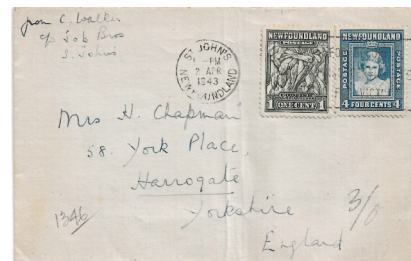 from C. Walker
c/o Job Bros
S. Johns
ST. JOHN'S
PM
2 APR
1943
NEWFOUNDLAND
NEWFOUNDLAND
POSTAGE
1 ONE CENT 1
NEWFOUNDLAND
POSTAGE POSTAGE
4 FOUR CENTS 4
Mrs H. Chapman
58. York Place,
Harrogate
Yorkshire
England
1346
3/6